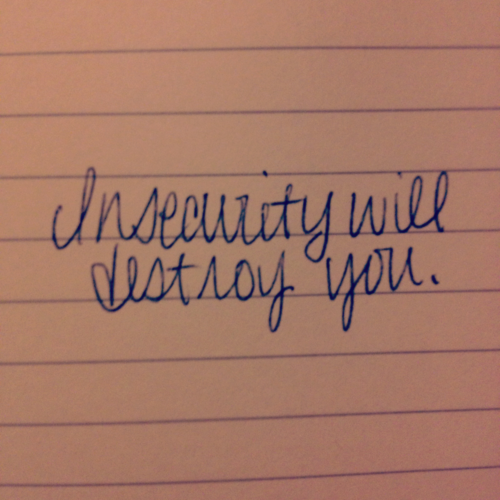 Insecurity will
destroy you.